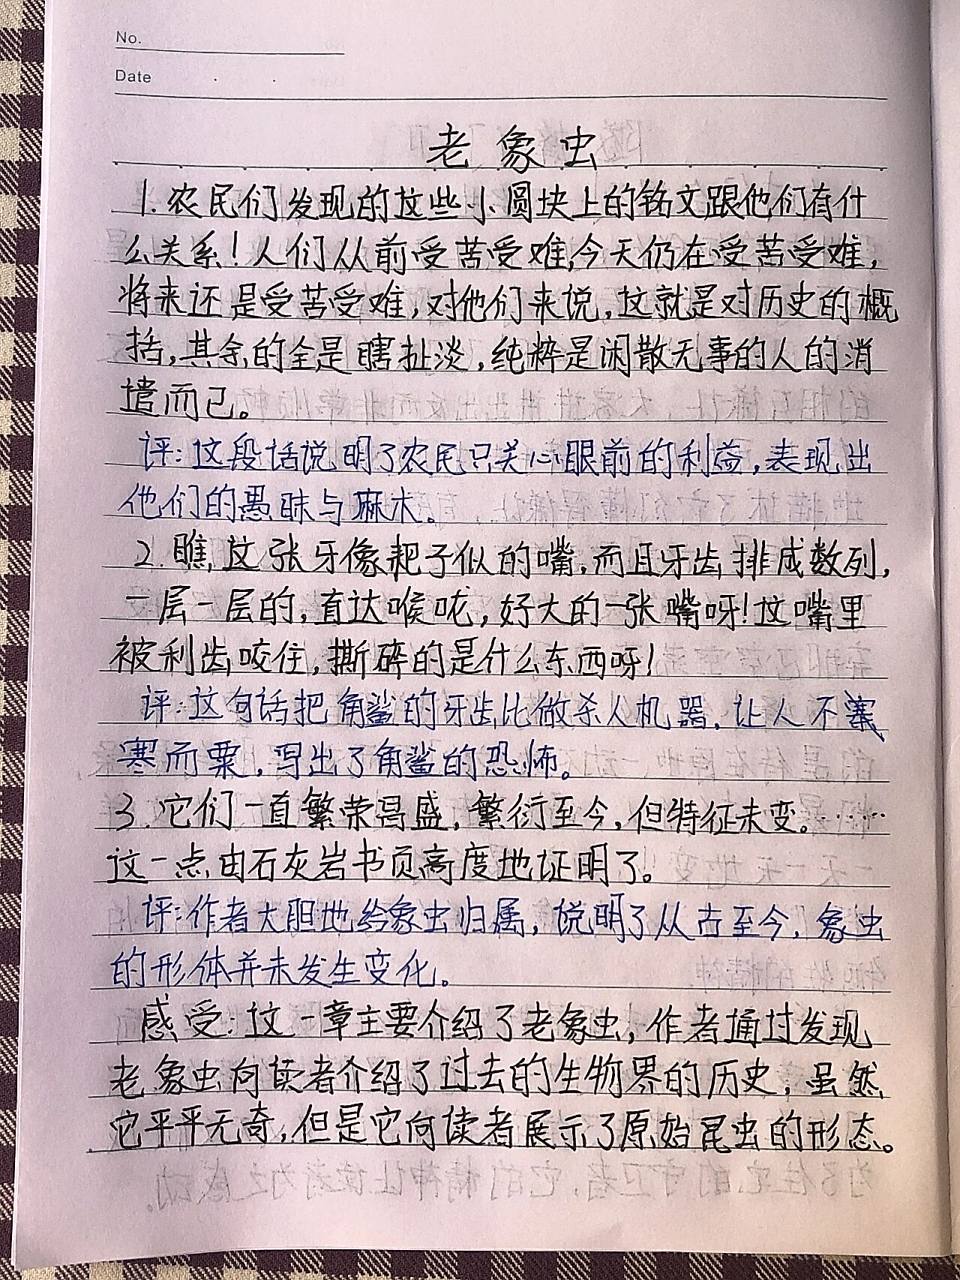 No.
Date
老象虫
1.农民们发现的这些小圆块上的铭文跟他们有什
么关系!人们从前受苦受难,今天仍在受苦受难,
将来还是受苦受难,对他们来说,这就是对历史的概
括,其余的全是瞎扯淡,纯粹是闲散无事的人的消
遣而已。
评:这段话说明了农民只关心眼前的利益,表现出
他们的愚昧与麻木。
2.瞧,这张牙像耙子似的嘴,而且牙齿排成数列,
一层一层的,直达喉咙,好大的一张嘴呀!这嘴里
被利齿咬住,撕碎的是什么东西呀!
评:这句话把角鲨的牙齿比做杀人机器,让人不寒
寒而粟,写出了角鲨的恐怖。
3.它们一直繁荣昌盛,繁衍至今,但特征未变。……
这一点由石灰岩书页高度地证明了。
评:作者大胆地给象虫归属,说明了从古至今,象虫
的形体并未发生变化。
感受:这一章主要介绍了老象虫,作者通过发现
老象虫向读者介绍了过去的生物界的历史,虽然
它平平无奇,但是它向读者展示了原始昆虫的形态。